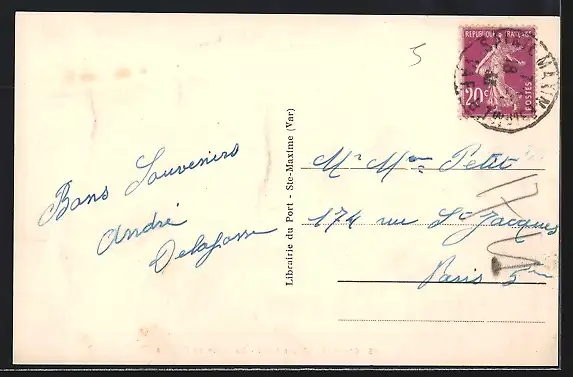 5
RÉPUBLIQUE FRANÇAISE
20c
POSTES
Bons Souvenirs
André
Delafosse
Librairie du Port - Ste-Maxime (Var)
Mr Mme Petit
174 rue St Jacques
Paris 5em